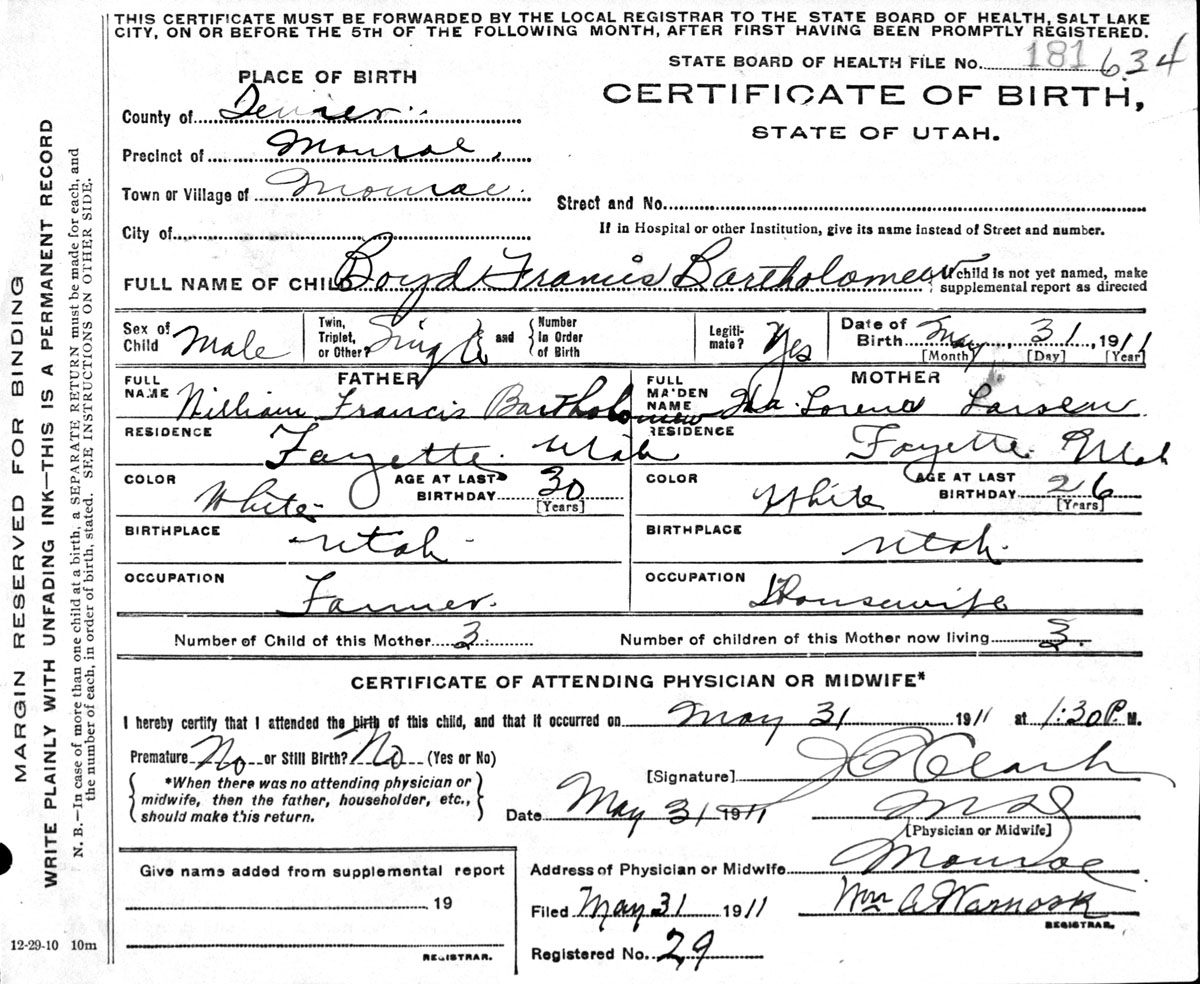 THIS CERTIFICATE MUST BE FORWARDED BY THE LOCAL REGISTRAR TO THE STATE BOARD OF HEALTH, SALT LAKE
CITY, ON OR BEFORE THE 5TH OF THE FOLLOWING MONTH, AFTER FIRST HAVING BEEN PROMPTLY REGISTERED.
STATE BOARD OF HEALTH FILE No. 181 634
CERTIFICATE OF BIRTH,
STATE OF UTAH.
PLACE OF BIRTH
County of Sevier
Precinct of Monroe,
Town or Village of Monroe.
Street and No.
City of
If in Hospital or other Institution, give its name instead of Street and number.
FULL NAME OF CHILD Boyd Francis Bartholomew
If child is not yet named, make
supplemental report as directed
Sex of Child Male
Twin, Triplet, or Other? Single and Number in Order of Birth
Legiti- mate? Yes
Date of Birth May, 31, 1911
[Month] [Day] [Year]
FATHER
FULL NAME William Francis Bartholomew
RESIDENCE Fayette. Utah
COLOR White AGE AT LAST BIRTHDAY 30 [Years]
BIRTHPLACE Utah
OCCUPATION Farmer.
MOTHER
FULL MAIDEN NAME Ida Lorena Larsen
RESIDENCE Fayette. Utah
COLOR White AGE AT LAST BIRTHDAY 26 [Years]
BIRTHPLACE Utah.
OCCUPATION Housewife
Number of Child of this Mother 3 Number of children of this Mother now living 3
CERTIFICATE OF ATTENDING PHYSICIAN OR MIDWIFE*
I hereby certify that I attended the birth of this child, and that it occurred on May 31 1911 at 1:30 P. M.
Premature No or Still Birth? No (Yes or No)
*When there was no attending physician or
midwife, then the father, householder, etc.,
should make this return.
[Signature] Clark
Date May 31 1911 M D
[Physician or Midwife]
Address of Physician or Midwife Monroe
Filed May 31 1911 Wm A Warnock
REGISTRAR.
Registered No. 29
Give name added from supplemental report
19
REGISTRAR.
12-29-10 10m
MARGIN RESERVED FOR BINDING
WRITE PLAINLY WITH UNFADING INK—THIS IS A PERMANENT RECORD
N. B.—In case of more than one child at a birth, a SEPARATE RETURN must be made for each, and
the number of each, in order of birth, stated. SEE INSTRUCTIONS ON OTHER SIDE.